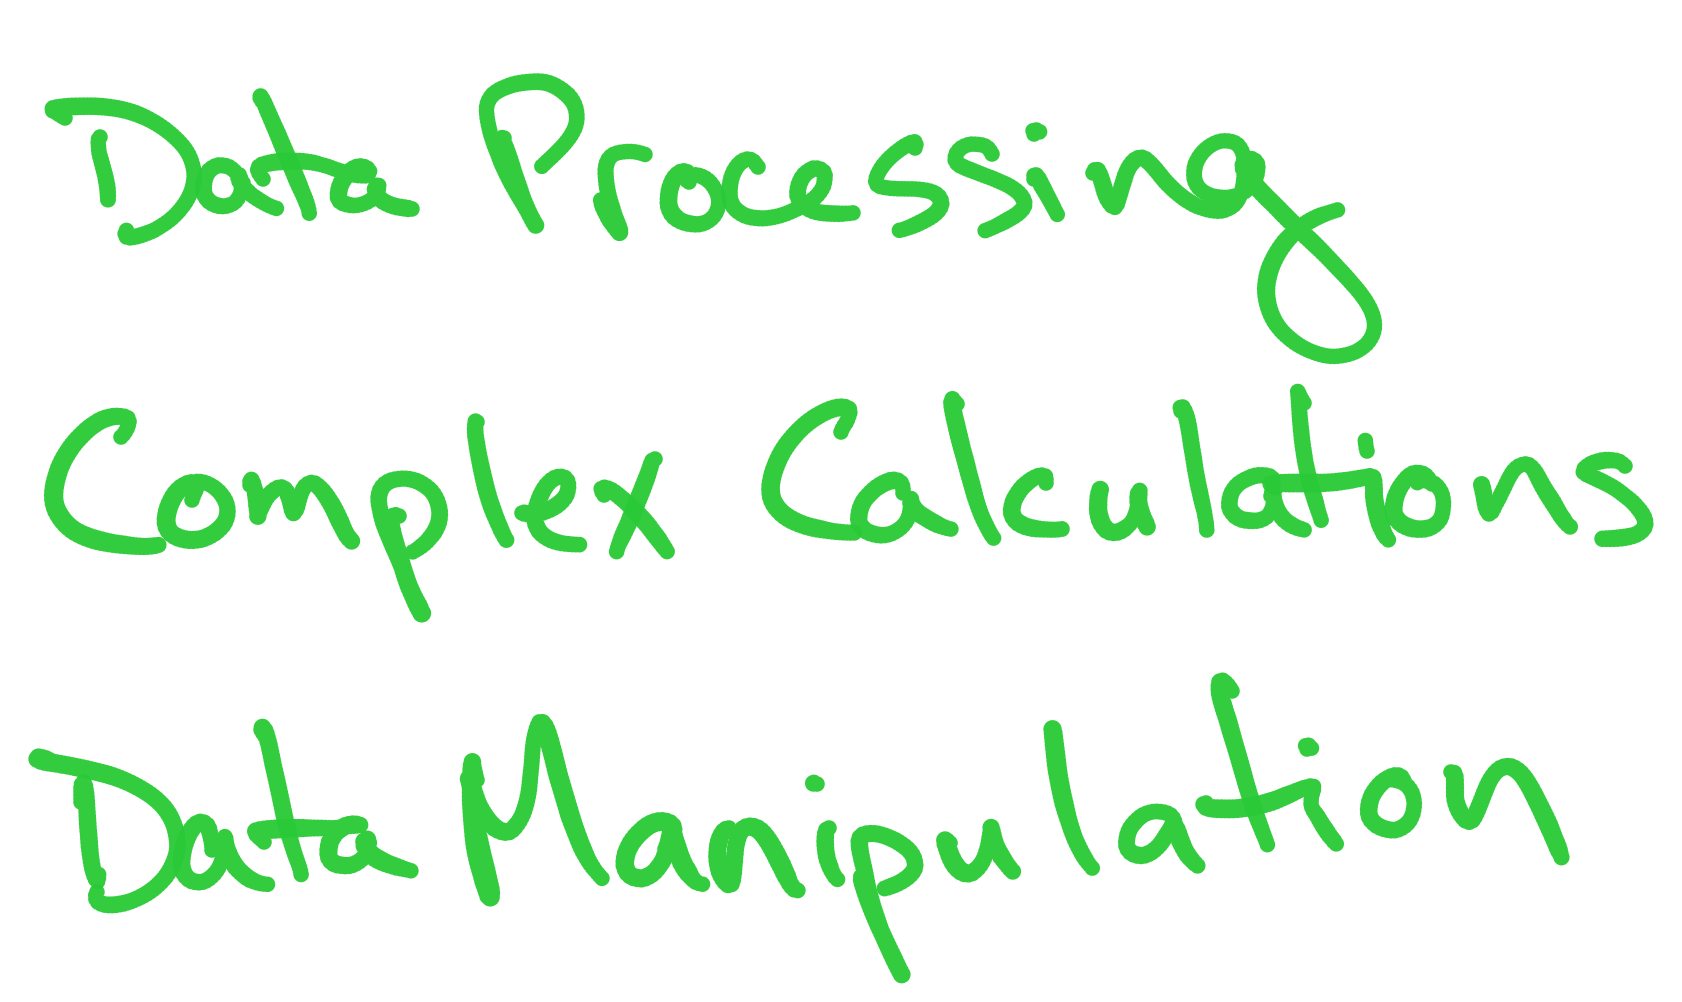 Data Processing
Complex Calculations
Data Manipulation